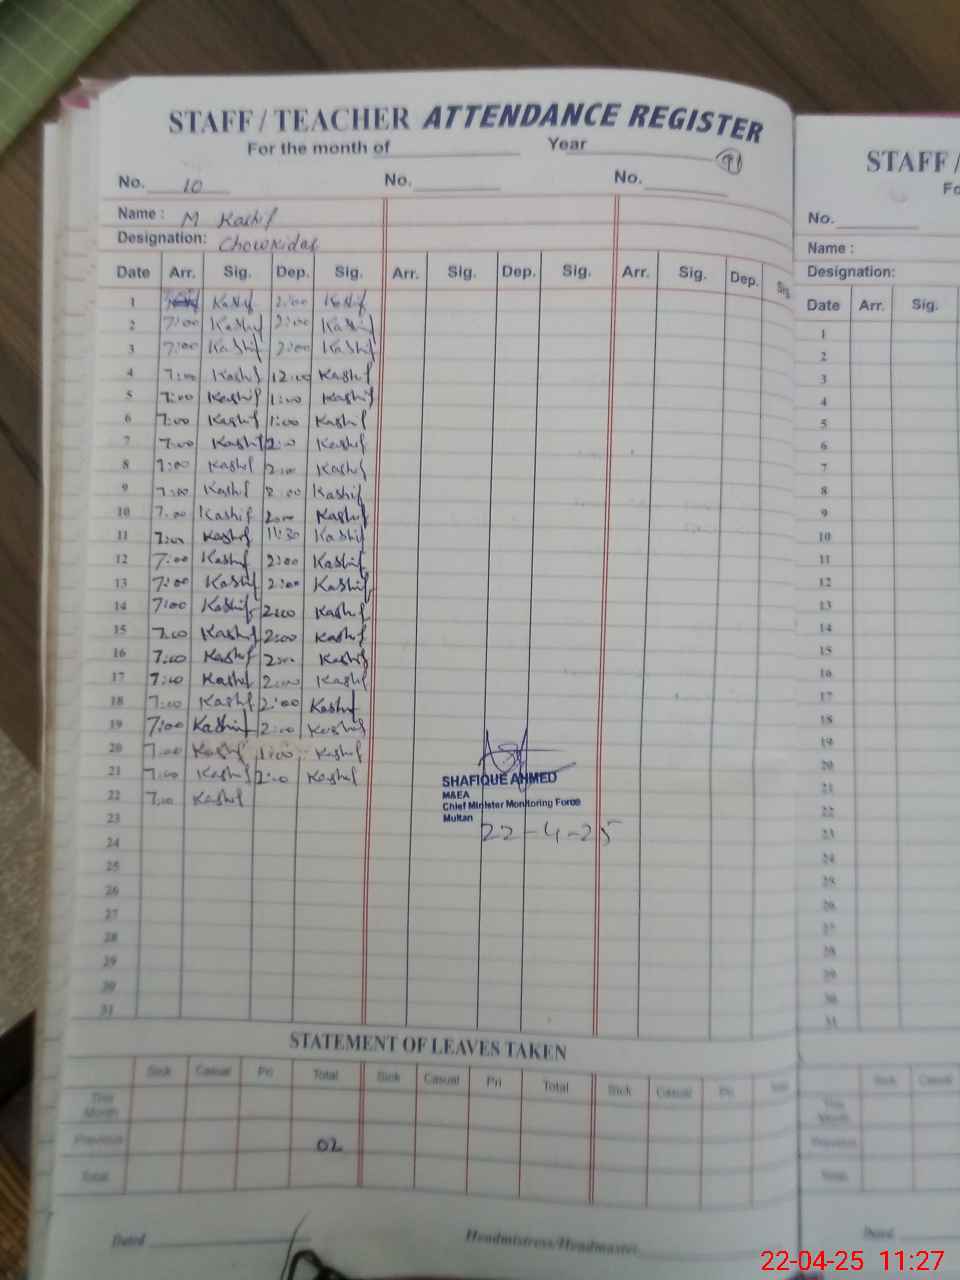 STAFF / TEACHER ATTENDANCE REGISTER
For the month of Year
91
No. 10 No. No.
Name : M Kashif
Designation: Chowkidar
Date Arr. Sig. Dep. Sig. Arr. Sig. Dep. Sig. Arr. Sig. Dep. Sig.
1 Kashif 2:00 Kashif
2 7:00 Kashif 2:00 Kashif
3 7:00 Kashif 2:00 Kashif
4 7:00 Kashif 12:00 Kashif
5 7:00 Kashif 1:00 Kashif
6 7:00 Kashif 1:00 Kashif
7 7:00 Kashif 2:00 Kashif
8 7:00 Kashif 2:00 Kashif
9 7:00 Kashif 2:00 Kashif
10 7:00 Kashif 2:00 Kashif
11 7:00 Kashif 11:30 Kashif
12 7:00 Kashif 2:00 Kashif
13 7:00 Kashif 2:00 Kashif
14 7:00 Kashif 2:00 Kashif
15 7:00 Kashif 2:00 Kashif
16 7:00 Kashif 2:00 Kashif
17 7:00 Kashif 2:00 Kashif
18 7:00 Kashif 2:00 Kashif
19 7:00 Kashif 2:00 Kashif
20 7:00 Kashif 1:00 Kashif
21 7:00 Kashif 2:00 Kashif
22 7:00 Kashif
23
24
25
26
27
28
29
30
31
SHAFIQUE AHMED
M&EA
Chief Minister Monitoring Force
Multan
22-4-25
STATEMENT OF LEAVES TAKEN
Sick Casual Pri Total Sick Casual Pri Total Sick Casual Pri
This Month
Previous 02
Total
Dated Headmistress/Headmaster
STAFF /
Fo
No.
Name :
Designation:
Date Arr. Sig.
1
2
3
4
5
6
7
8
9
10
11
12
13
14
15
16
17
18
19
20
21
22
23
24
25
26
27
28
29
30
31
Sick Casual
This Month
Previous
Total
Dated
22-04-25 11:27